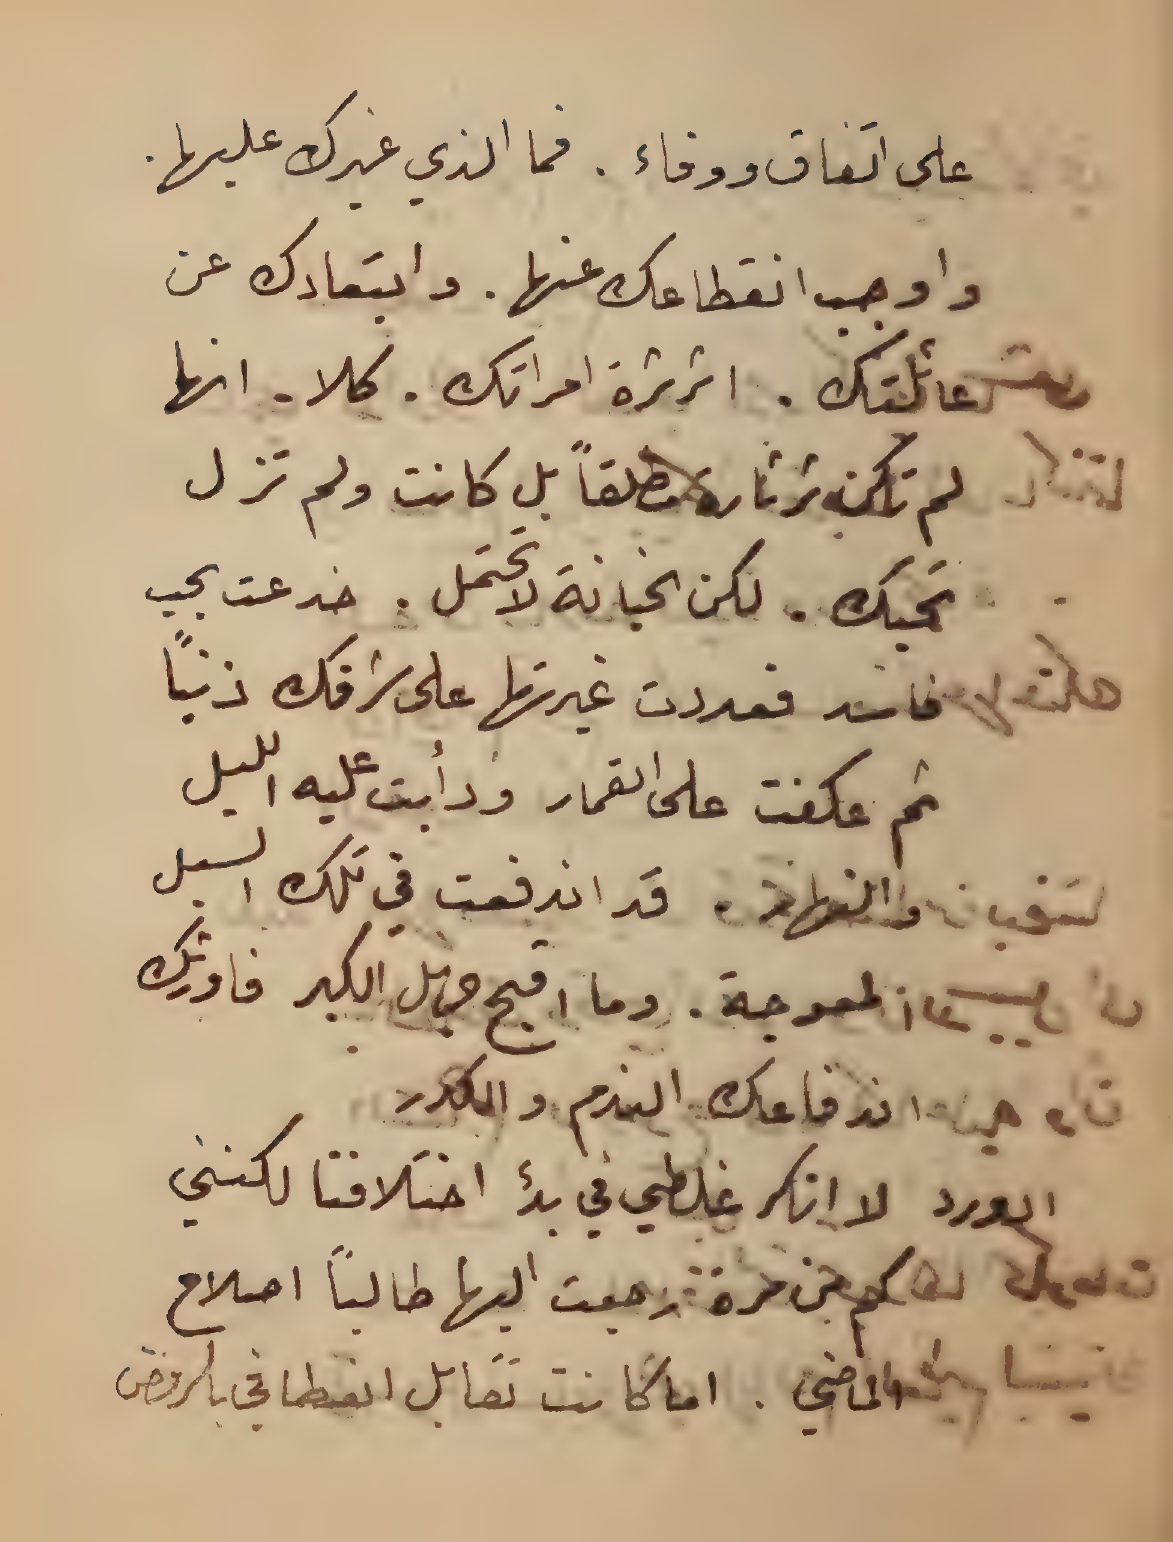 على اتفاق ووفاء . فما الذي غيرك عليها .
واوجب انقطاعك عنها . وابتعادك عن
عائلتك . اثرثرة امراتك . كلا . انها
لم تكن ثرثارة مطلقاً بل كانت ولم تزل
تحبك . لكن الخيانة لا تحتمل . خدعت بحب
فاسد فعددت غيرتها على شرفك ذنباً
ثم عكفت على القمار ودأبت عليه الليل
والنهار . قد اندفعت في تلك السبل
المعوجة . وما اقبح جهل الكبر فاورثك
اندفاعك الندم والكدر
ادورد لا انكر غلطي في بدأ اختلافنا لكنني
كم من مرة رجعت اليها طالباً اصلاح
الماضي . اما كانت تقابل انعطافي بالرفض